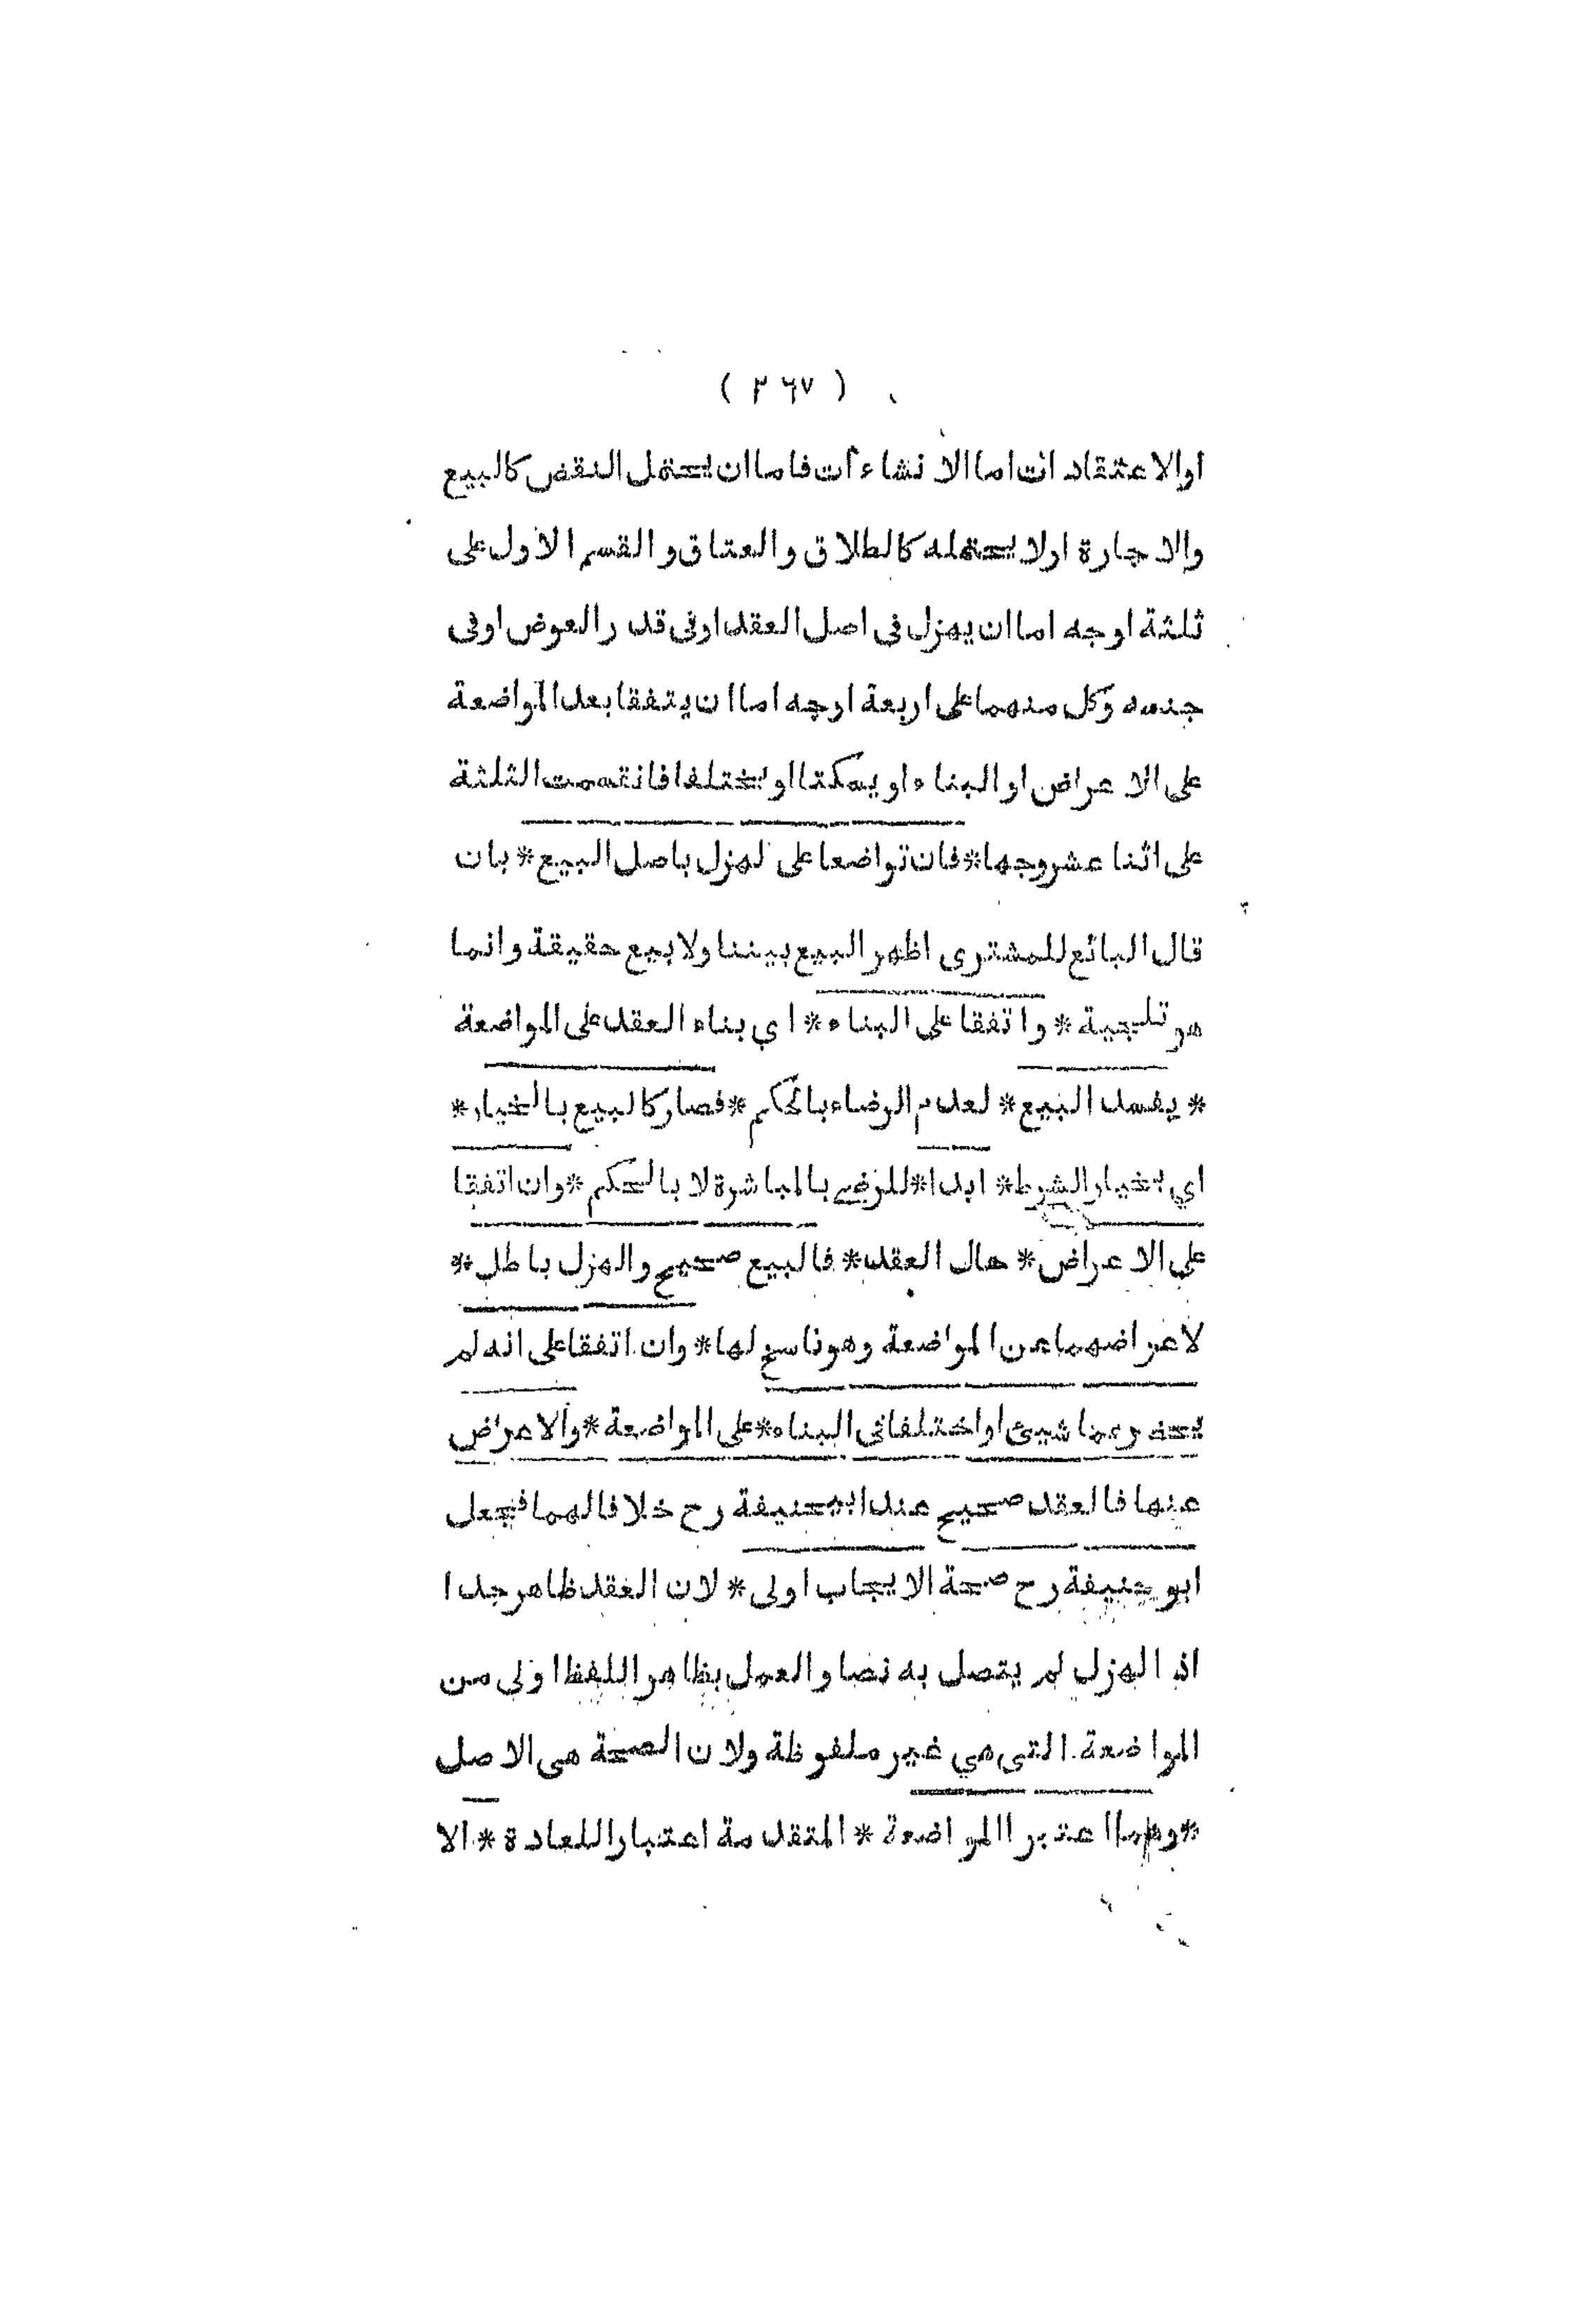 ( ٣٦٧ )
او الاعتقادات اما الانشاءآت فاما ان يحتمل النقض كالبيع
والاجارة اولا يحتمله كالطلاق والعتاق والقسم الاول على
ثلثة اوجه اما ان يهزل في اصل العقد اوفى قدر العوض اوفى
جنسه وكل منهما على اربعة اوجه اما ان يتفقا بعد المواضعة
على الاعراض او البناء او يسكتا او يختلفا فانقسمت الثلثة
على اثنا عشر وجها * فان تواضعا على لهزل باصل البيع * بان
قال البائع للمشترى اظهر البيع بيننا ولا بيع حقيقة وانما
هو تلجية * واتفقا على البناء * اي بناء العقد على المواضعة
* يفسد البيع * لعدم الرضاء بالحكم * فصار كالبيع بالخيار *
اي بخيار الشرط * ابدا * للرضى بالمباشرة لا بالحكم * وان اتفقا
على الاعراض * حال العقد * فالبيع صحيح والهزل باطل *
لاعراضهما عن المواضعة وهو ناسخ لها * وان اتفقا على انه لم
يحضرهما شيئ او اختلفا فى البناء * على المواضعة * والاعراض
عنها فالعقد صحيح عند ابيحنيفة رح خلافا لهما فجعل
ابو حنيفة رح صحة الايجاب اولى * لان العقد ظاهر جدا
اذ الهزل لم يتصل به نصا والعمل بظاهر اللفظ اولى من
المواضعة التى هي غير ملفوظة ولان الصحة هى الاصل
* وهما اعتبرا المواضعة * المتقدمة اعتبارا للعادة * الا